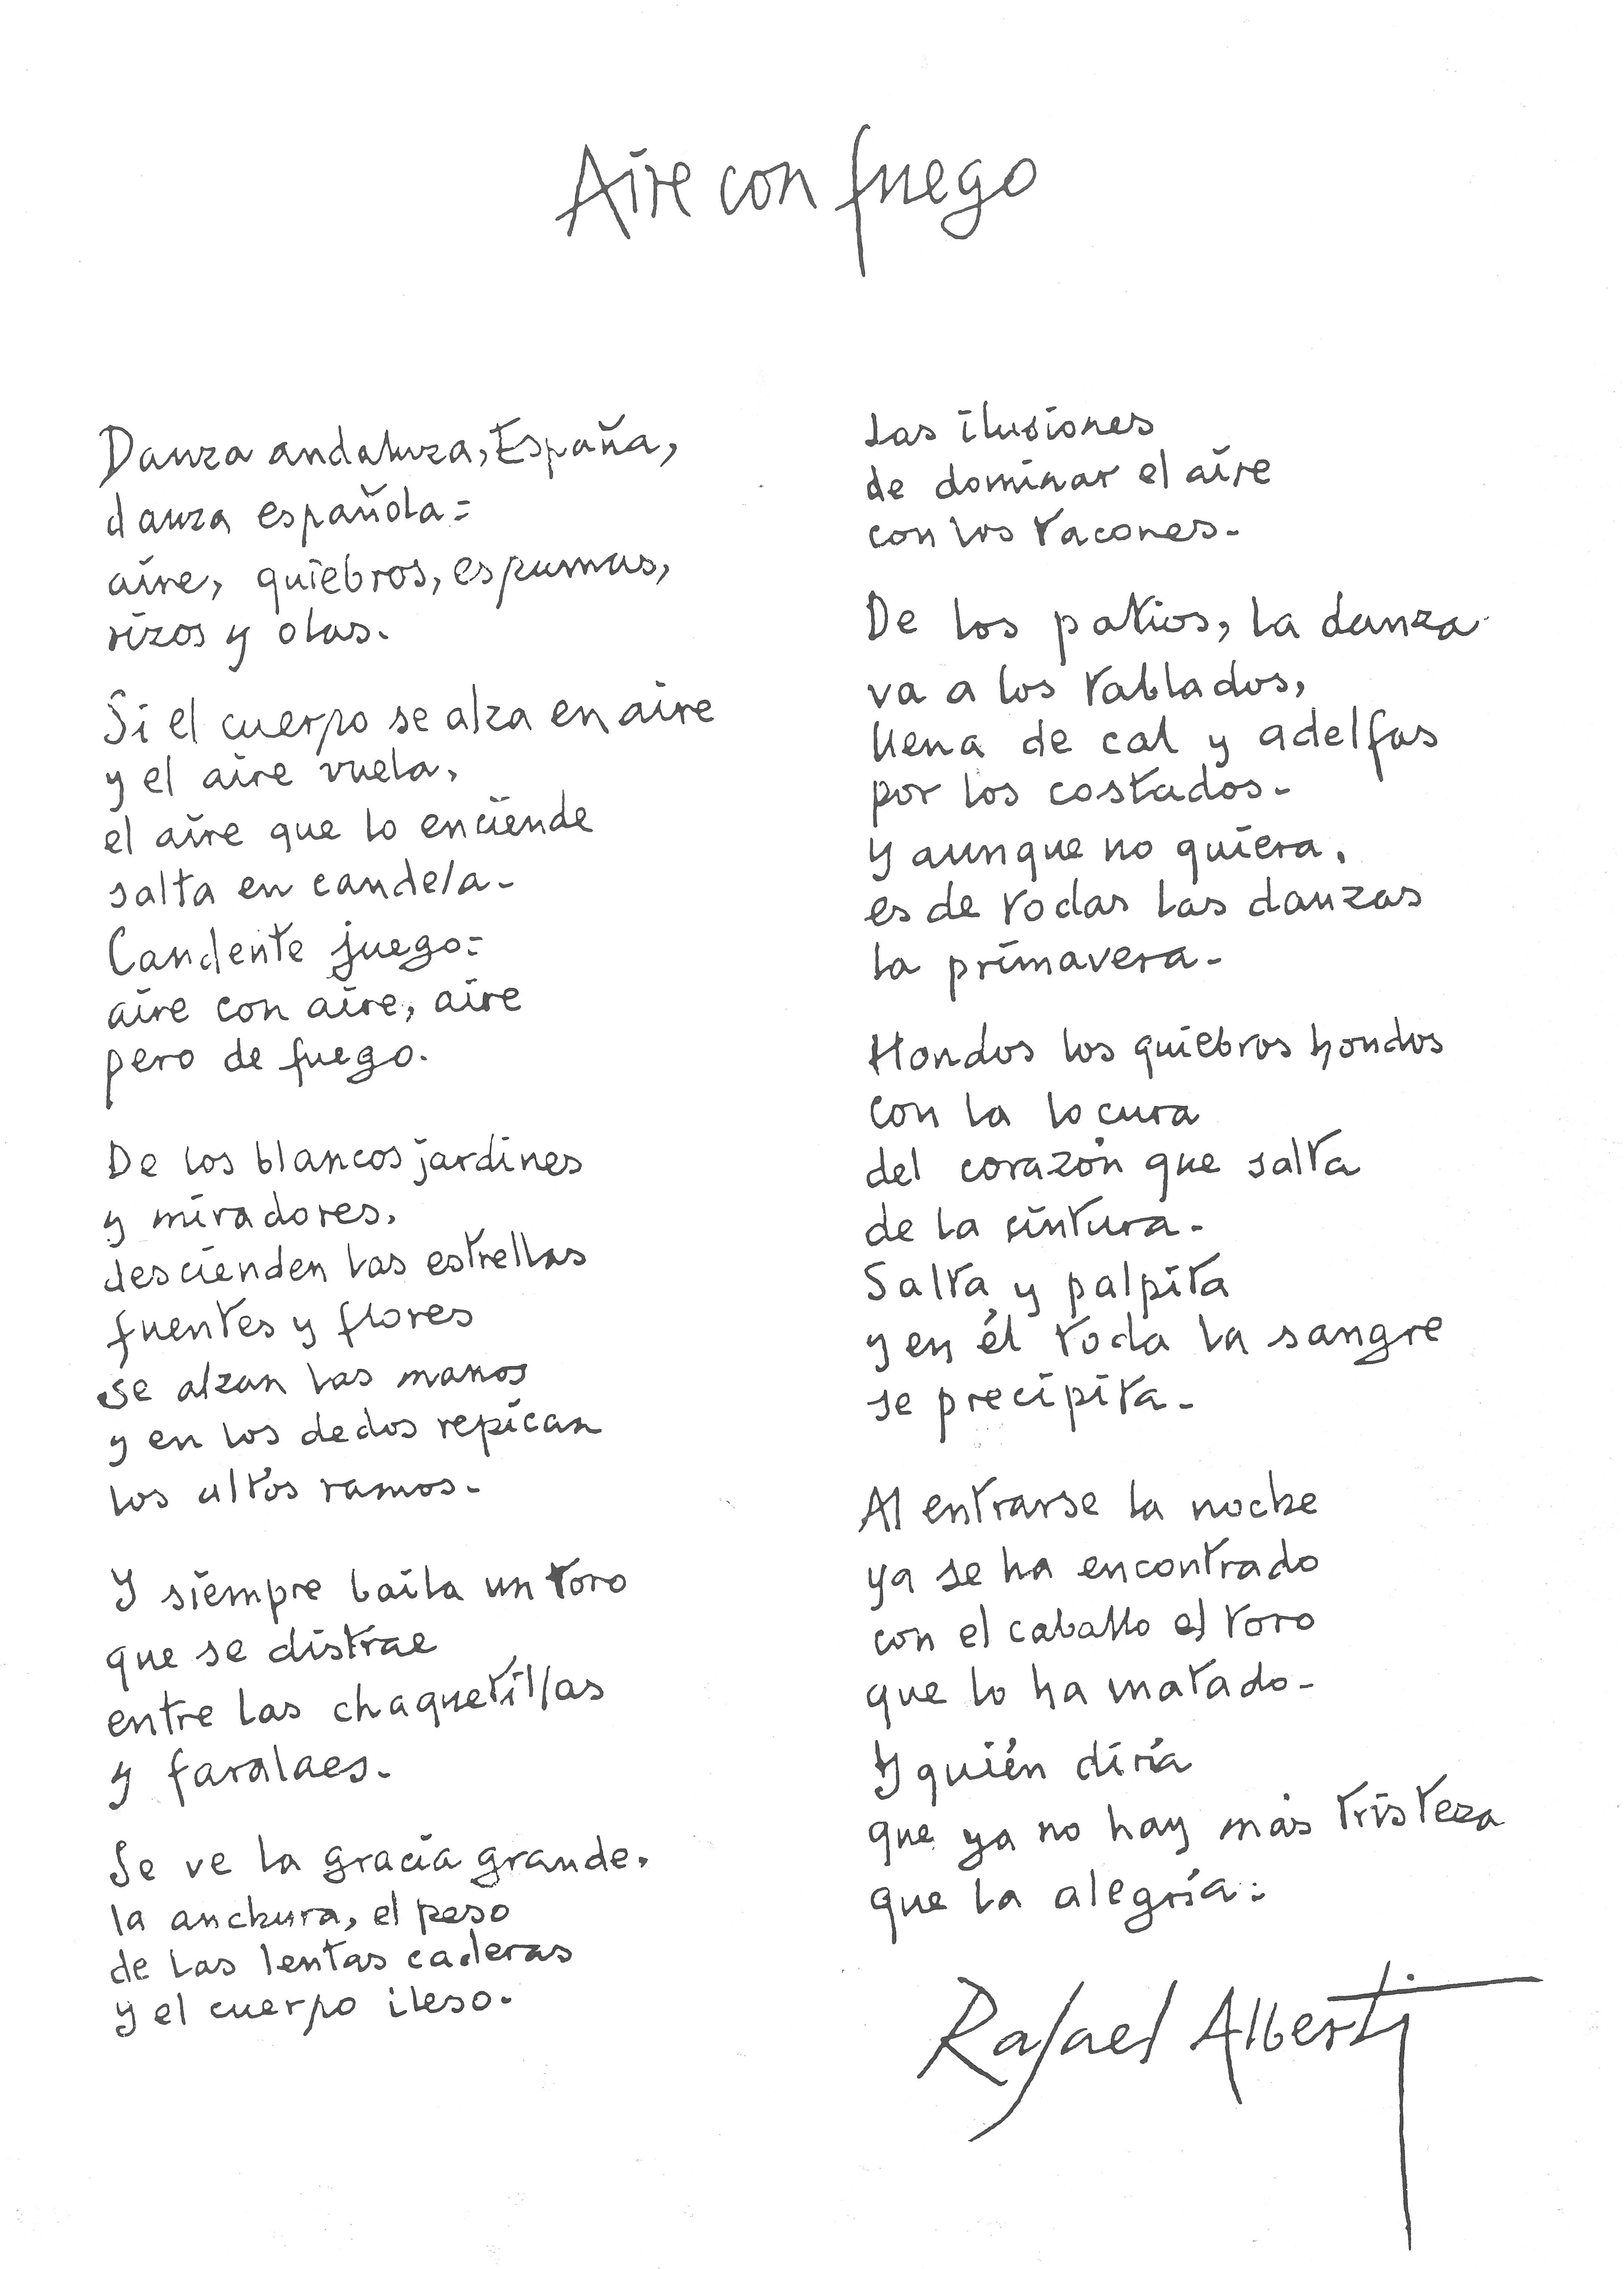 Aire con fuego
Danza andaluza, España,
danza española:
aire, quiebros, espumas,
rizos y olas.
Si el cuerpo se alza en aire
y el aire vuela,
el aire que lo enciende
salta en candela.
Candente juego:
aire con aire, aire
pero de fuego.
De los blancos jardines
y miradores,
descienden las estrellas
fuentes y flores
se alzan las manos
y en los dedos repican
los altos ramos.
Y siempre baila un toro
que se distrae
entre las chaquetillas
y faralaes.
Se ve la gracia grande,
la anchura, el peso
de las lentas caderas
y el cuerpo ileso.
Las ilusiones
de dominar el aire
con los tacones.
De los patios, la danza
va a los tablados,
llena de cal y adelfas
por los costados.
Y aunque no quiera,
es de todas las danzas
la primavera.
Hondos los quiebros hondos
con la locura
del corazón que salta
de la cintura.
Salta y palpita
y en él toda la sangre
se precipita.
Al entrarse la noche
ya se ha encontrado
con el caballo el toro
que lo ha matado.
Y quién diría
que ya no hay más tristeza
que la alegría.
Rafael Alberti